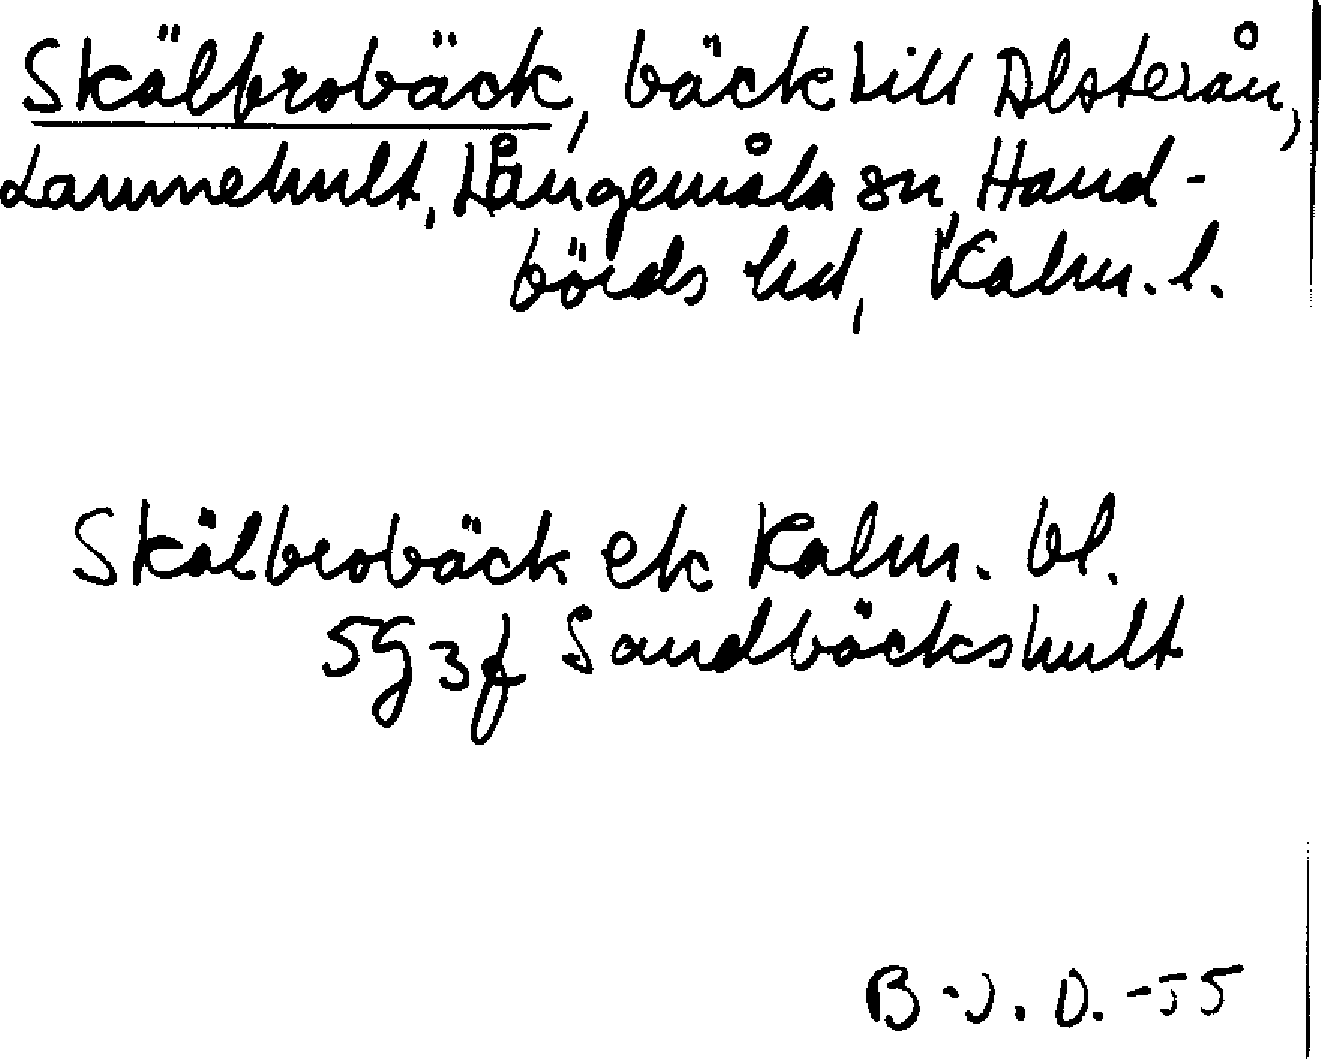 Skälbrobäck, bäck till Alsterån,
Lammehult, Långemåla sn, Hand-
börds hd, Kalm. l.
Skälbrobäck ek Kalm. bl.
5G3f Sandbäckshult
B-J. D. -55